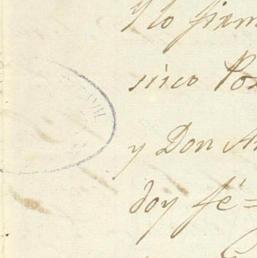 Y lo firm
sinco Pos
y Don An
doy fé =